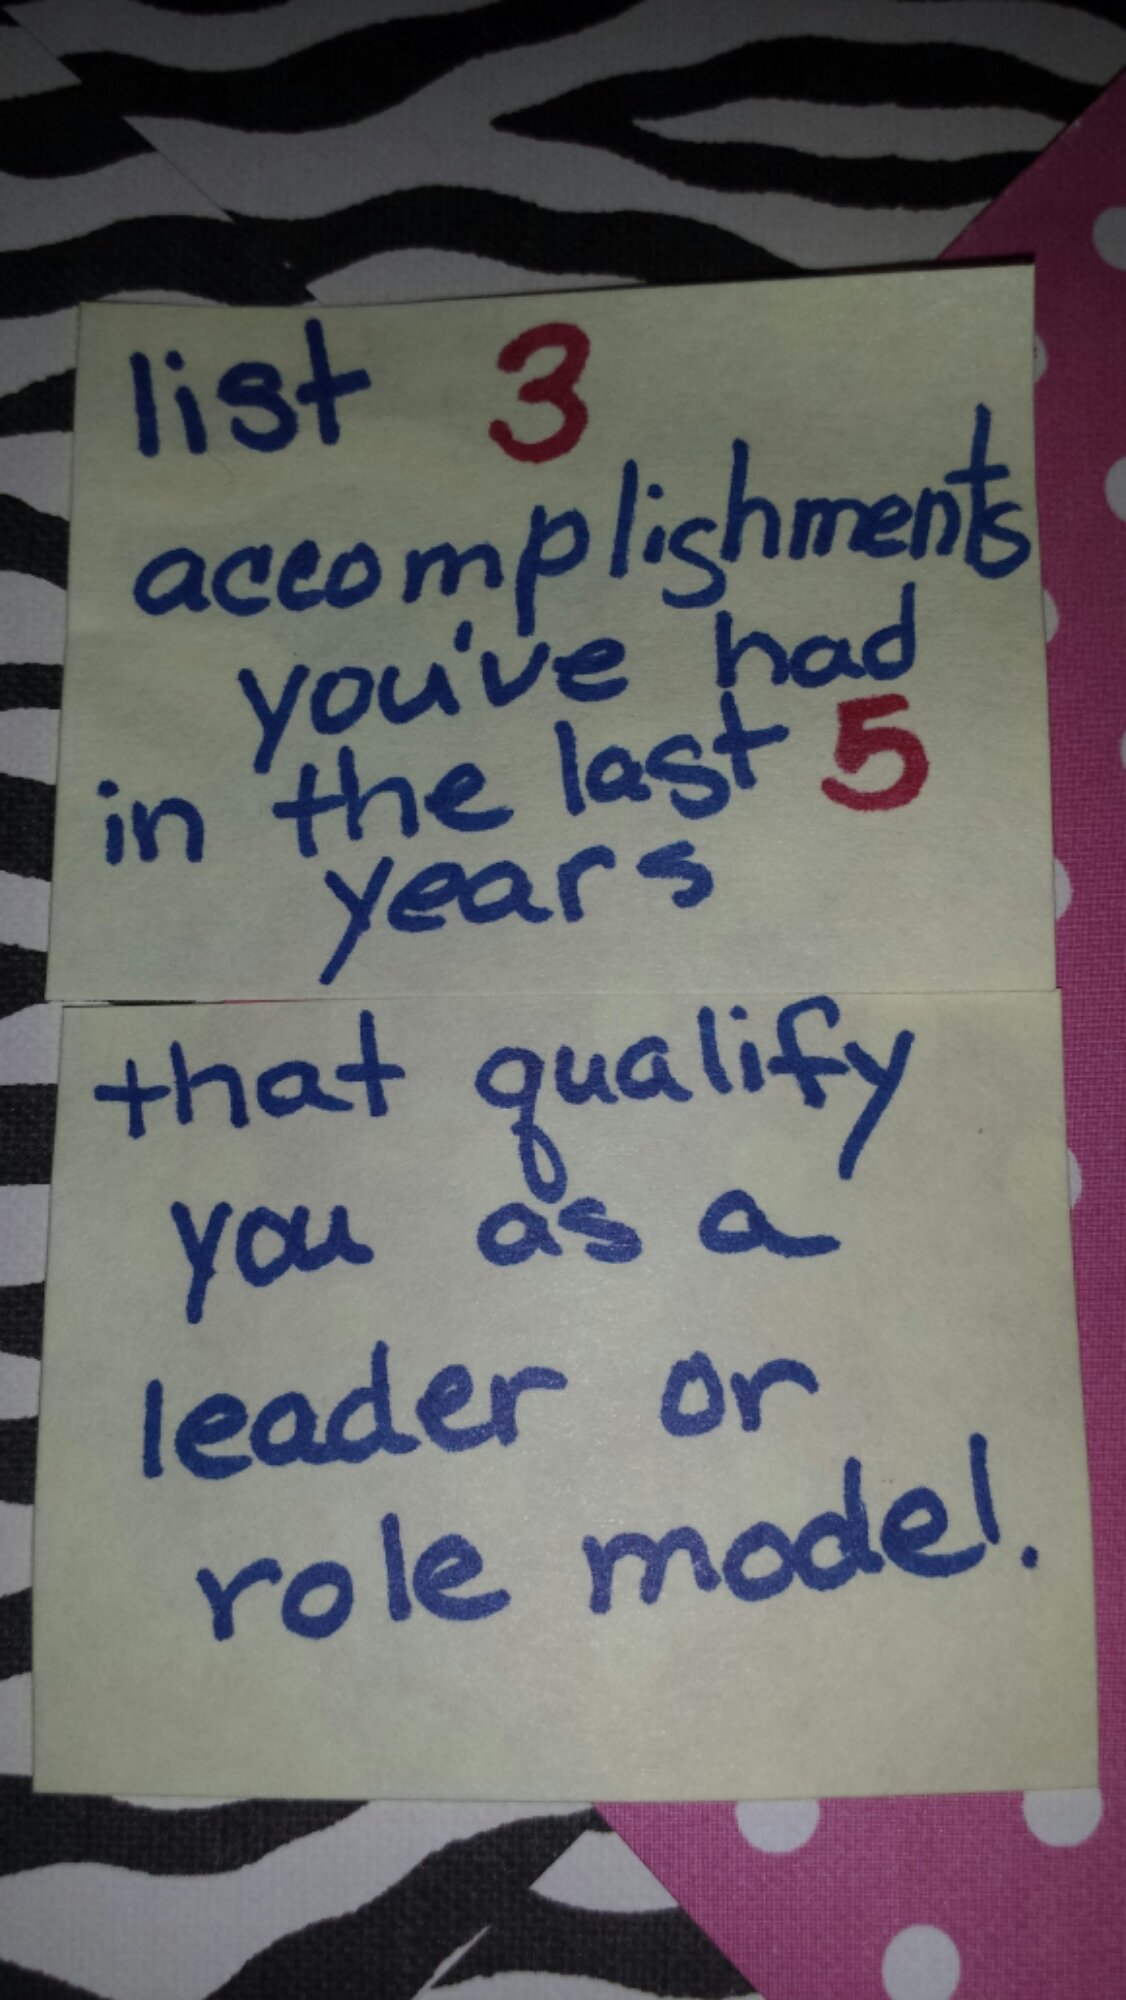 list 3
accomplishments
you've had
in the last 5
years
that qualify
you as a
leader or
role model.